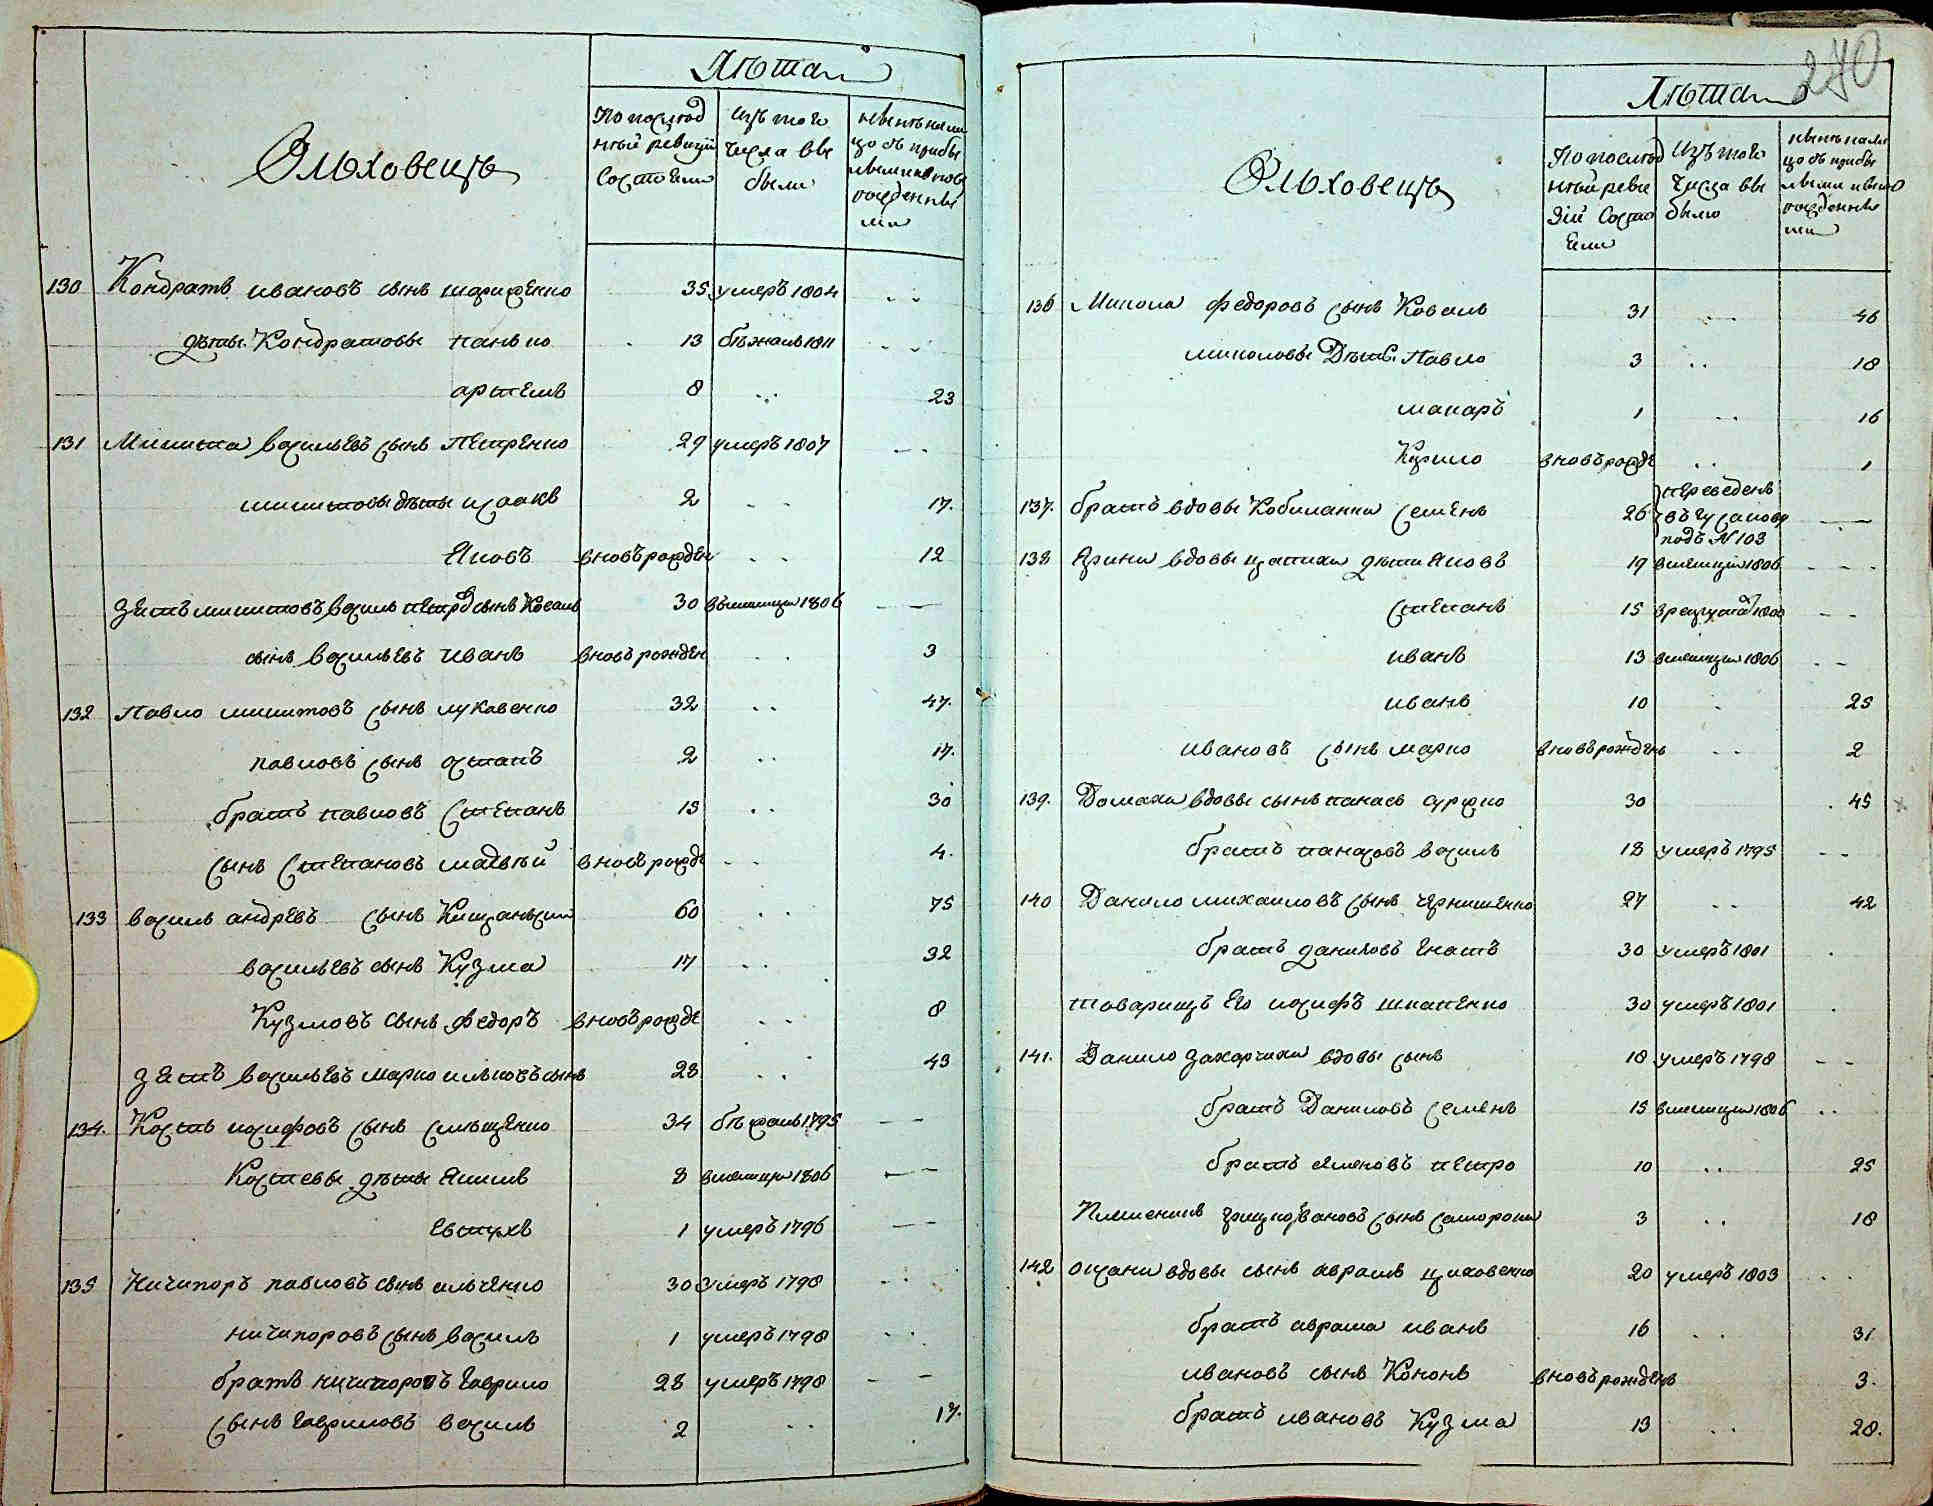 Лѣта
Ольховецъ
По послѣд
ней ревизіи
состояли
Изъ того
числа вы
были
нынѣ на ли
цо съ прибы
лыми и ново
рожденны
ми
130 Кондратъ ивановъ сынъ 35 умеръ 1804
дѣты Кондратовы панько 13 бѣжалъ 1811
артемъ 8 23
131 Микита васильевъ сынъ Петренко 29 умеръ 1807
микитовы дѣты исаакъ 2 17.
Яковъ вновърожден 12
зять микитовъ василь петровъ сынъ Коваль 30 вмилиціи 1806
сынъ васильевъ иванъ вновърожден 3
132 Павло микитовъ сынъ луковенко 32 47.
павловъ сынъ остапъ 2 17.
братъ павловъ степанъ 15 30
сынъ степановъ матвѣй вновърожде 4.
133 василь андревъ сынъ 60 75
васильевъ сынъ Кузма 17 32
Кузмовъ сынъ федоръ вновърожде 8
зять васильевъ марко ильковъ сынъ 28 43
134. Кость іосифовъ сынъ 34 бѣжалъ 1795
Костевы дѣты Якимъ 8 вмилиціи 1806
Евтухъ 1 умеръ 1796
135 Ничипоръ павловъ сынъ ильченко 30 умеръ 1798
ничипоровъ сынъ василь 1 умеръ 1798
братъ ничипоровъ гаврило 28 умеръ 1798
сынъ гавриловъ василь 2 17.
270
Лѣта
Ольховецъ
По послѣд
ней реви
зій состо
яли
Изъ того
числа вы
было
нынѣ на ли
цо съ прибы
лыми и вново
рожденны
ми
136 Микола федоровъ сынъ Коваль 31 46
миколовы Дѣты Павло 3 18
макаръ 1 16
Курило вновърожде 1
137. братъ вдовы Кобилянки семенъ 26 переведенъ
въ
подъ N 103
138 вдовы дѣти Яковъ 19 вмилиціи 1806
степанъ 15 врекруты
иванъ 13 вмилиціи 1806
иванъ 10 25
ивановъ сынъ марко вновърожденъ 2
139. Домахи вдовы сынъ панасъ 30 45
братъ панасовъ василь 18 умеръ 1795
140 Данило михайловъ сынъ чернишенко 27 42
братъ даниловъ игнатъ 30 умеръ 1801
товарищъ его іосифъ шпаченко 30 умеръ 1801
141. Данило захарчихи вдовы сынъ 18 умеръ 1798
братъ Даниловъ семенъ 15 вмилиціи 1806
братъ семеновъ петро 10 25
Племенникъ грицко ивановъ сынъ 3 18
142 вдовы сынъ аврамъ 20 умеръ 1803
братъ аврама иванъ 16 31
ивановъ сынъ Кононъ вновърожденъ 3.
братъ ивановъ Кузма 13 28.